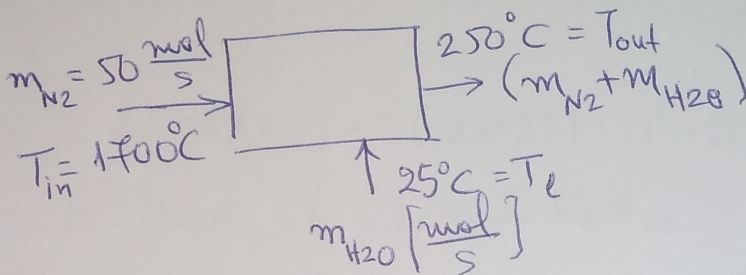 m_N2 = 50 mol/s
T_in = 1700°C
250°C = T_out
(m_N2 + m_H2O)
25°C = T_l
m_H2O [mol/s]